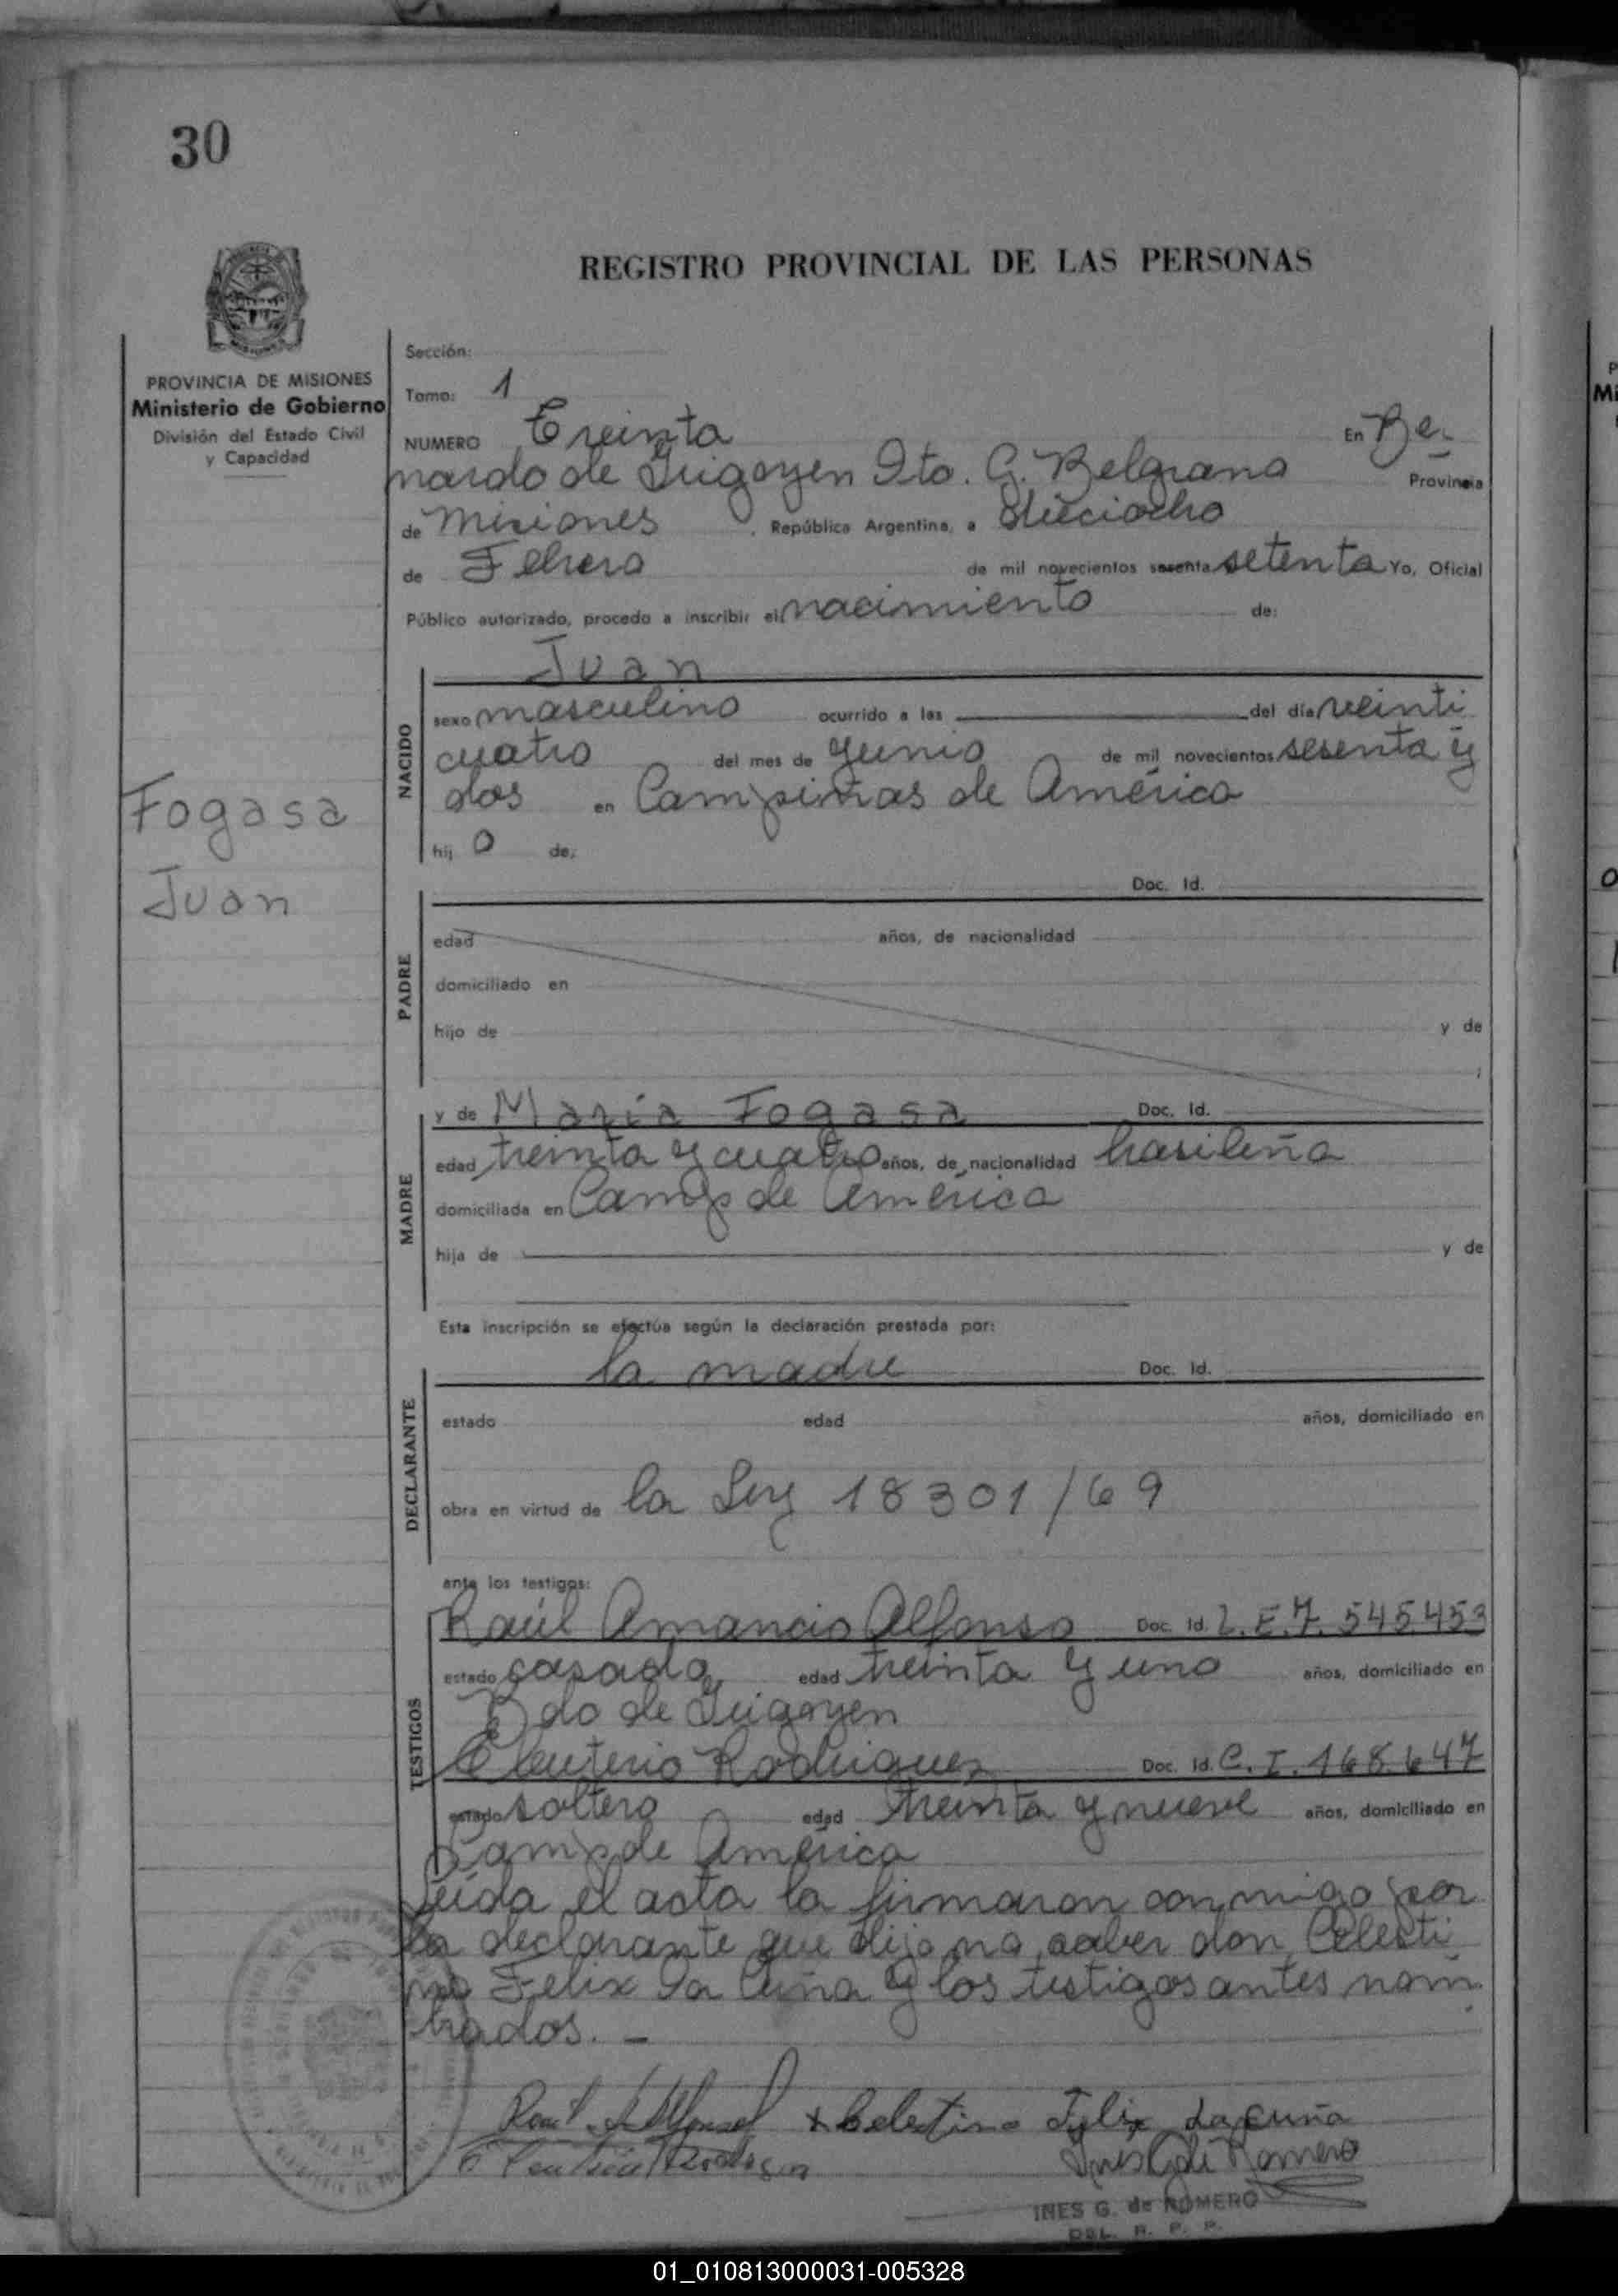 30
REGISTRO PROVINCIAL DE LAS PERSONAS
PROVINCIA DE MISIONES
Ministerio de Gobierno
División del Estado Civil
y Capacidad
Fogasa
Juan
Sección:
Tomo: 1
NUMERO Treinta En Ber
nardo de Irigoyen Dto. G. Belgrano Provincia
de Misiones, República Argentina, a dieciocho
de Febrero de mil novecientos sesenta setenta Yo, Oficial
Público autorizado, procedo a inscribir el nacimiento de:
Juan
NACIDO
sexo masculino ocurrido a las del día veinti
cuatro del mes de Junio de mil novecientos sesenta y
dos en Campinas de América
hij o de:
PADRE
Doc. Id.
edad años, de nacionalidad
domiciliado en
hijo de y de
MADRE
y de Maria Fogasa Doc. Id.
edad treinta y cuatro años, de nacionalidad brasileña
domiciliada en Camp de América
hija de y de
Esta inscripción se efectúa según la declaración prestada por:
DECLARANTE
la madre Doc. Id.
estado edad años, domiciliado en
obra en virtud de la Ley 18301/69
ante los testigos:
TESTIGOS
Raúl Amancio Alfonso Doc. Id. L.E.7.545.453
estado casado edad treinta y uno años, domiciliado en
Bdo de Irigoyen
Eleuterio Rodriguez Doc. Id. C.I.168.647
estado soltero edad treinta y nueve años, domiciliado en
Camp de América
Leída el acta la firmaron conmigo por
la declarante que dijo no saber don Celesti
no Felix Da Cuña y los testigos antes nom
brados. —
Celestino Felix Dacuña
Ines G de Romero
INES G. de ROMERO
DEL. R. P. P.
01_010813000031-005328